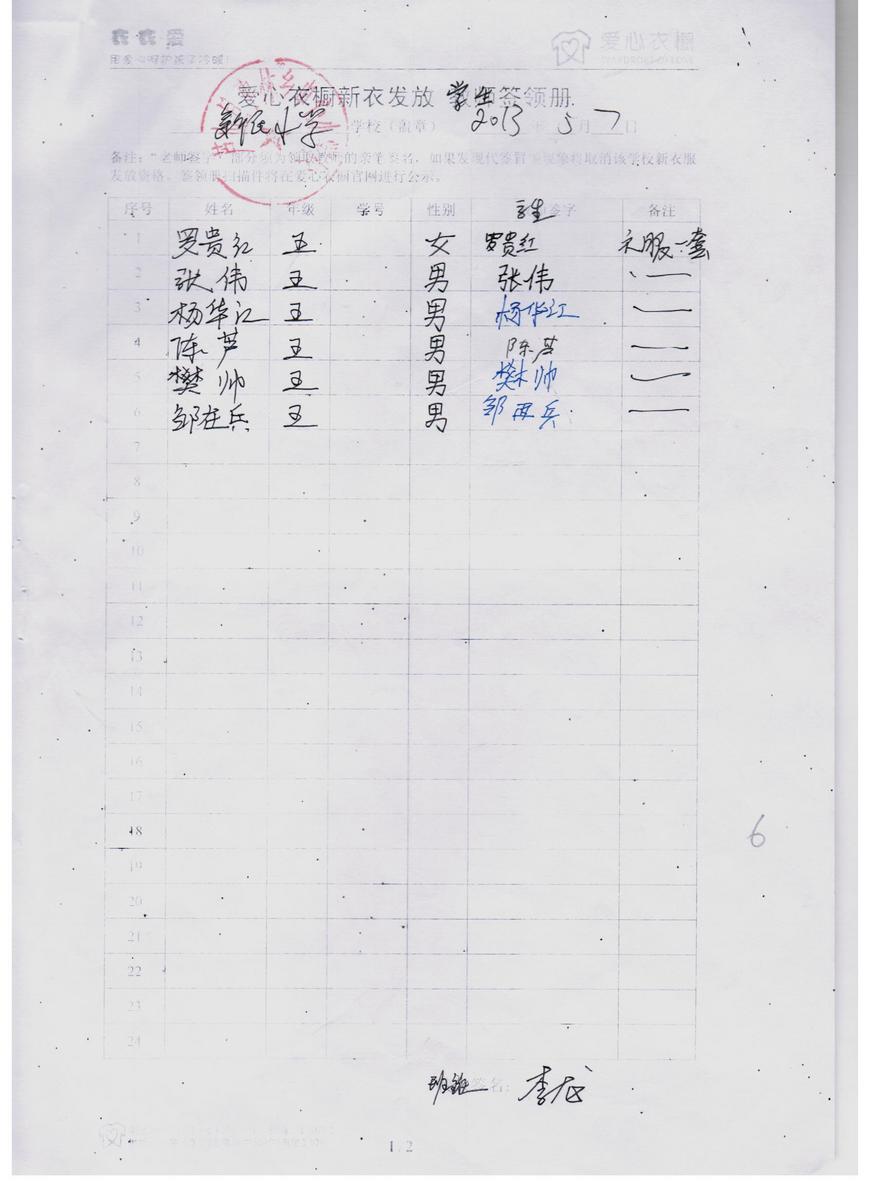 爱心衣橱
爱心衣橱新衣发放 学生签领册
新民小学 学校（盖章） 2013年5月7日
备注："老师签字"部分须为领取教师的亲笔签名，如果发现代签冒领现象将取消该学校新衣服
发放资格。签领册扫描件将在爱心衣橱官网进行公示。
序号 姓名 年级 学号 性别 签字 备注
1 罗贵红 五 女 罗贵红 衣服一套
2 张伟 五 男 张伟
3 杨华江 五 男 杨华江
4 陈芦 五 男 陈芦
5 樊帅 五 男 樊帅
6 邹在兵 五 男 邹再兵
7
8
9
10
11
12
13
14
15
16
17
18
19
20
21
22
23
24
6
签名：李龙
1/2